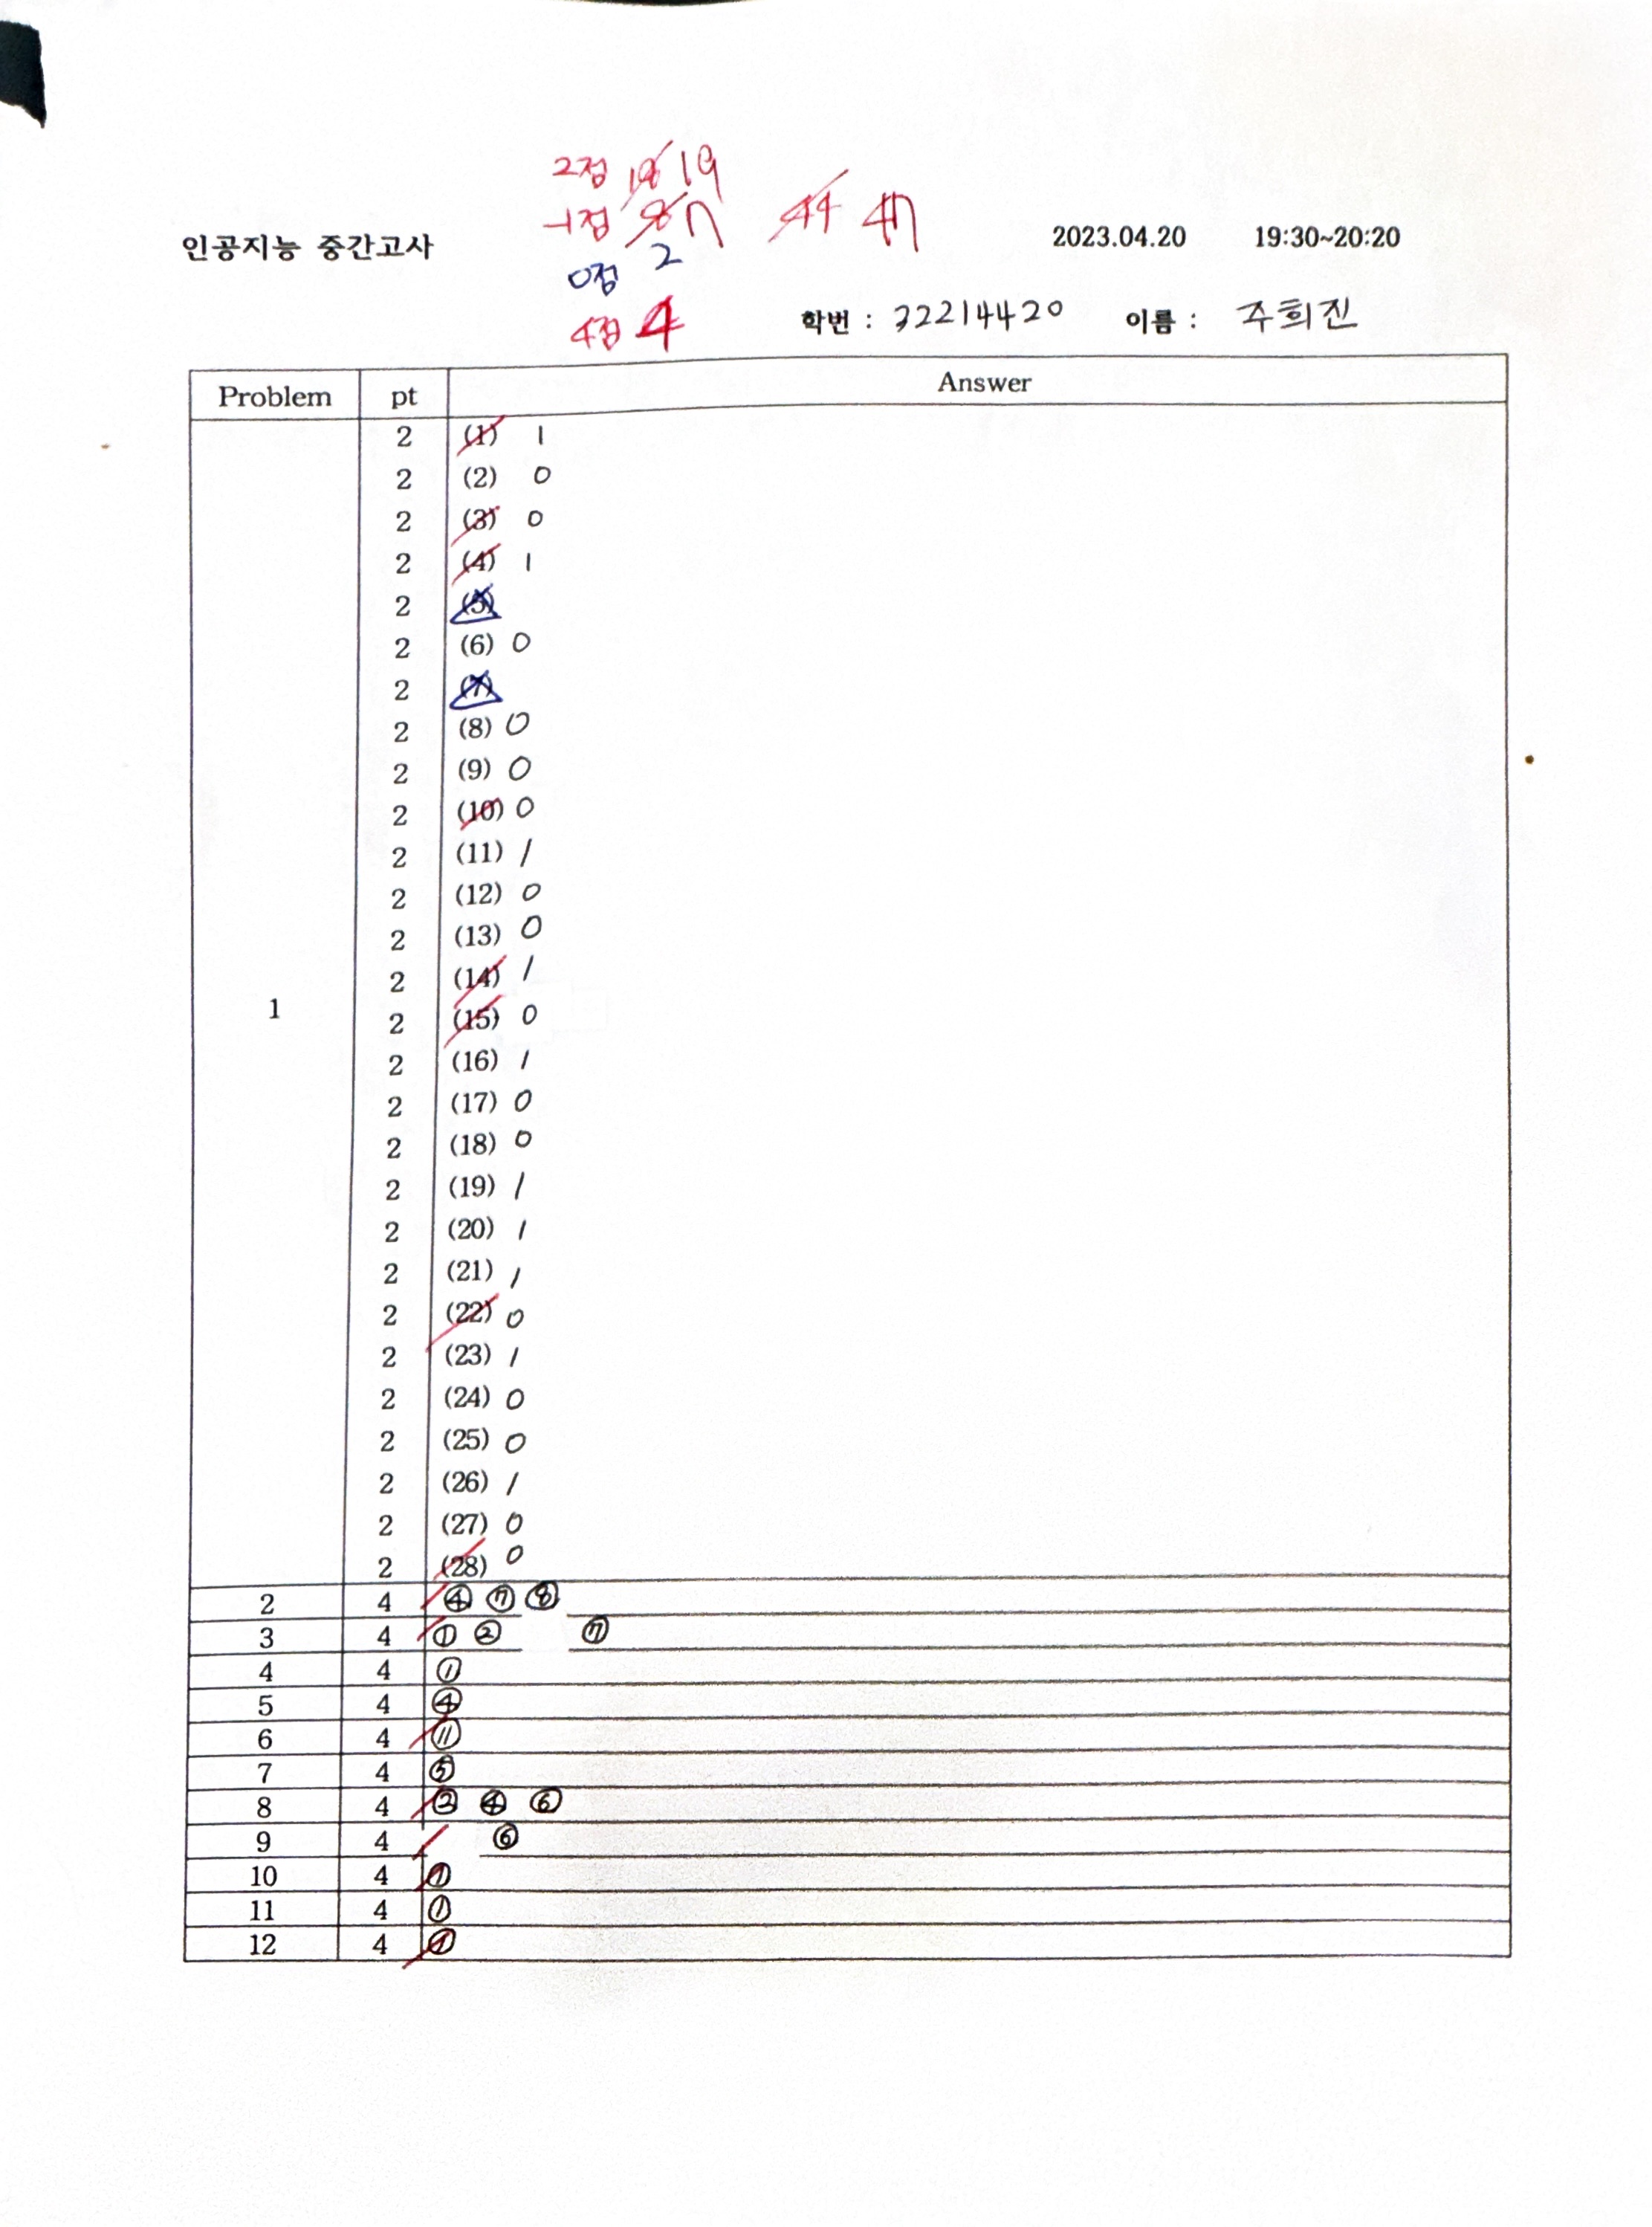 2점 18 19
-1점 8 7 44 47
인공지능 중간고사 2023.04.20 19:30~20:20
0점 2
4점 4
학번 : 32214420 이름 : 주희진
Problem pt Answer
2 (1) 1
2 (2) 0
2 (3) 0
2 (4) 1
2 (5)
2 (6) 0
2 (7)
2 (8) 0
2 (9) 0
2 (10) 0
2 (11) 1
2 (12) 0
2 (13) 0
2 (14) 1
1
2 (15) 0
2 (16) 1
2 (17) 0
2 (18) 0
2 (19) 1
2 (20) 1
2 (21) 1
2 (22) 0
2 (23) 1
2 (24) 0
2 (25) 0
2 (26) 1
2 (27) 0
2 (28) 0
2 4 ④ ⑦ ⑧
3 4 ① ② ⑦
4 4 ①
5 4 ④
6 4 ⑪
7 4 ⑤
8 4 ② ④ ⑥
9 4 ⑥
10 4 ①
11 4 ①
12 4 ①